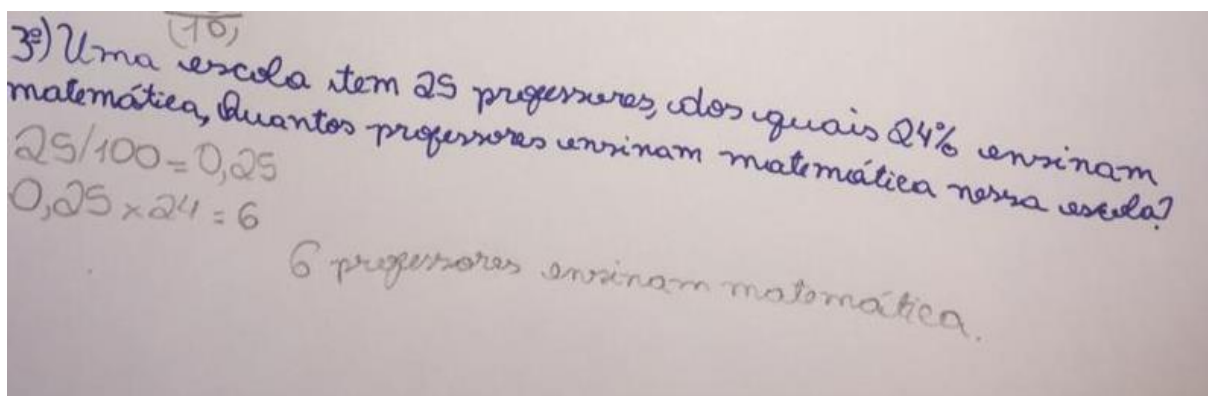 (10)
3º) Uma escola tem 25 professores, dos quais 24% ensinam
matemática, Quantos professores ensinam matemática nessa escola?
25/100=0,25
0,25 x 24 = 6
6 professores ensinam matemática.